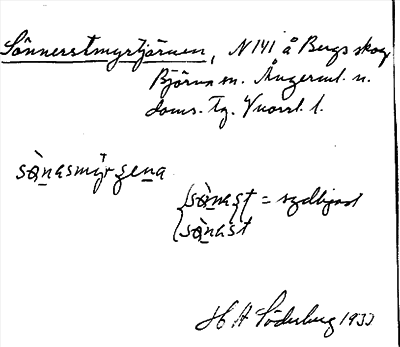 Sönnerstmyrtjärnen, N 141 å Bergs skog
Björna sn. Ångerml. n.
doms. Tg. Vnorrl. l.
sø̀nasmỳrʒena
{sø̀nast = sydligast
{sø̀nast
H A Söderberg 1933